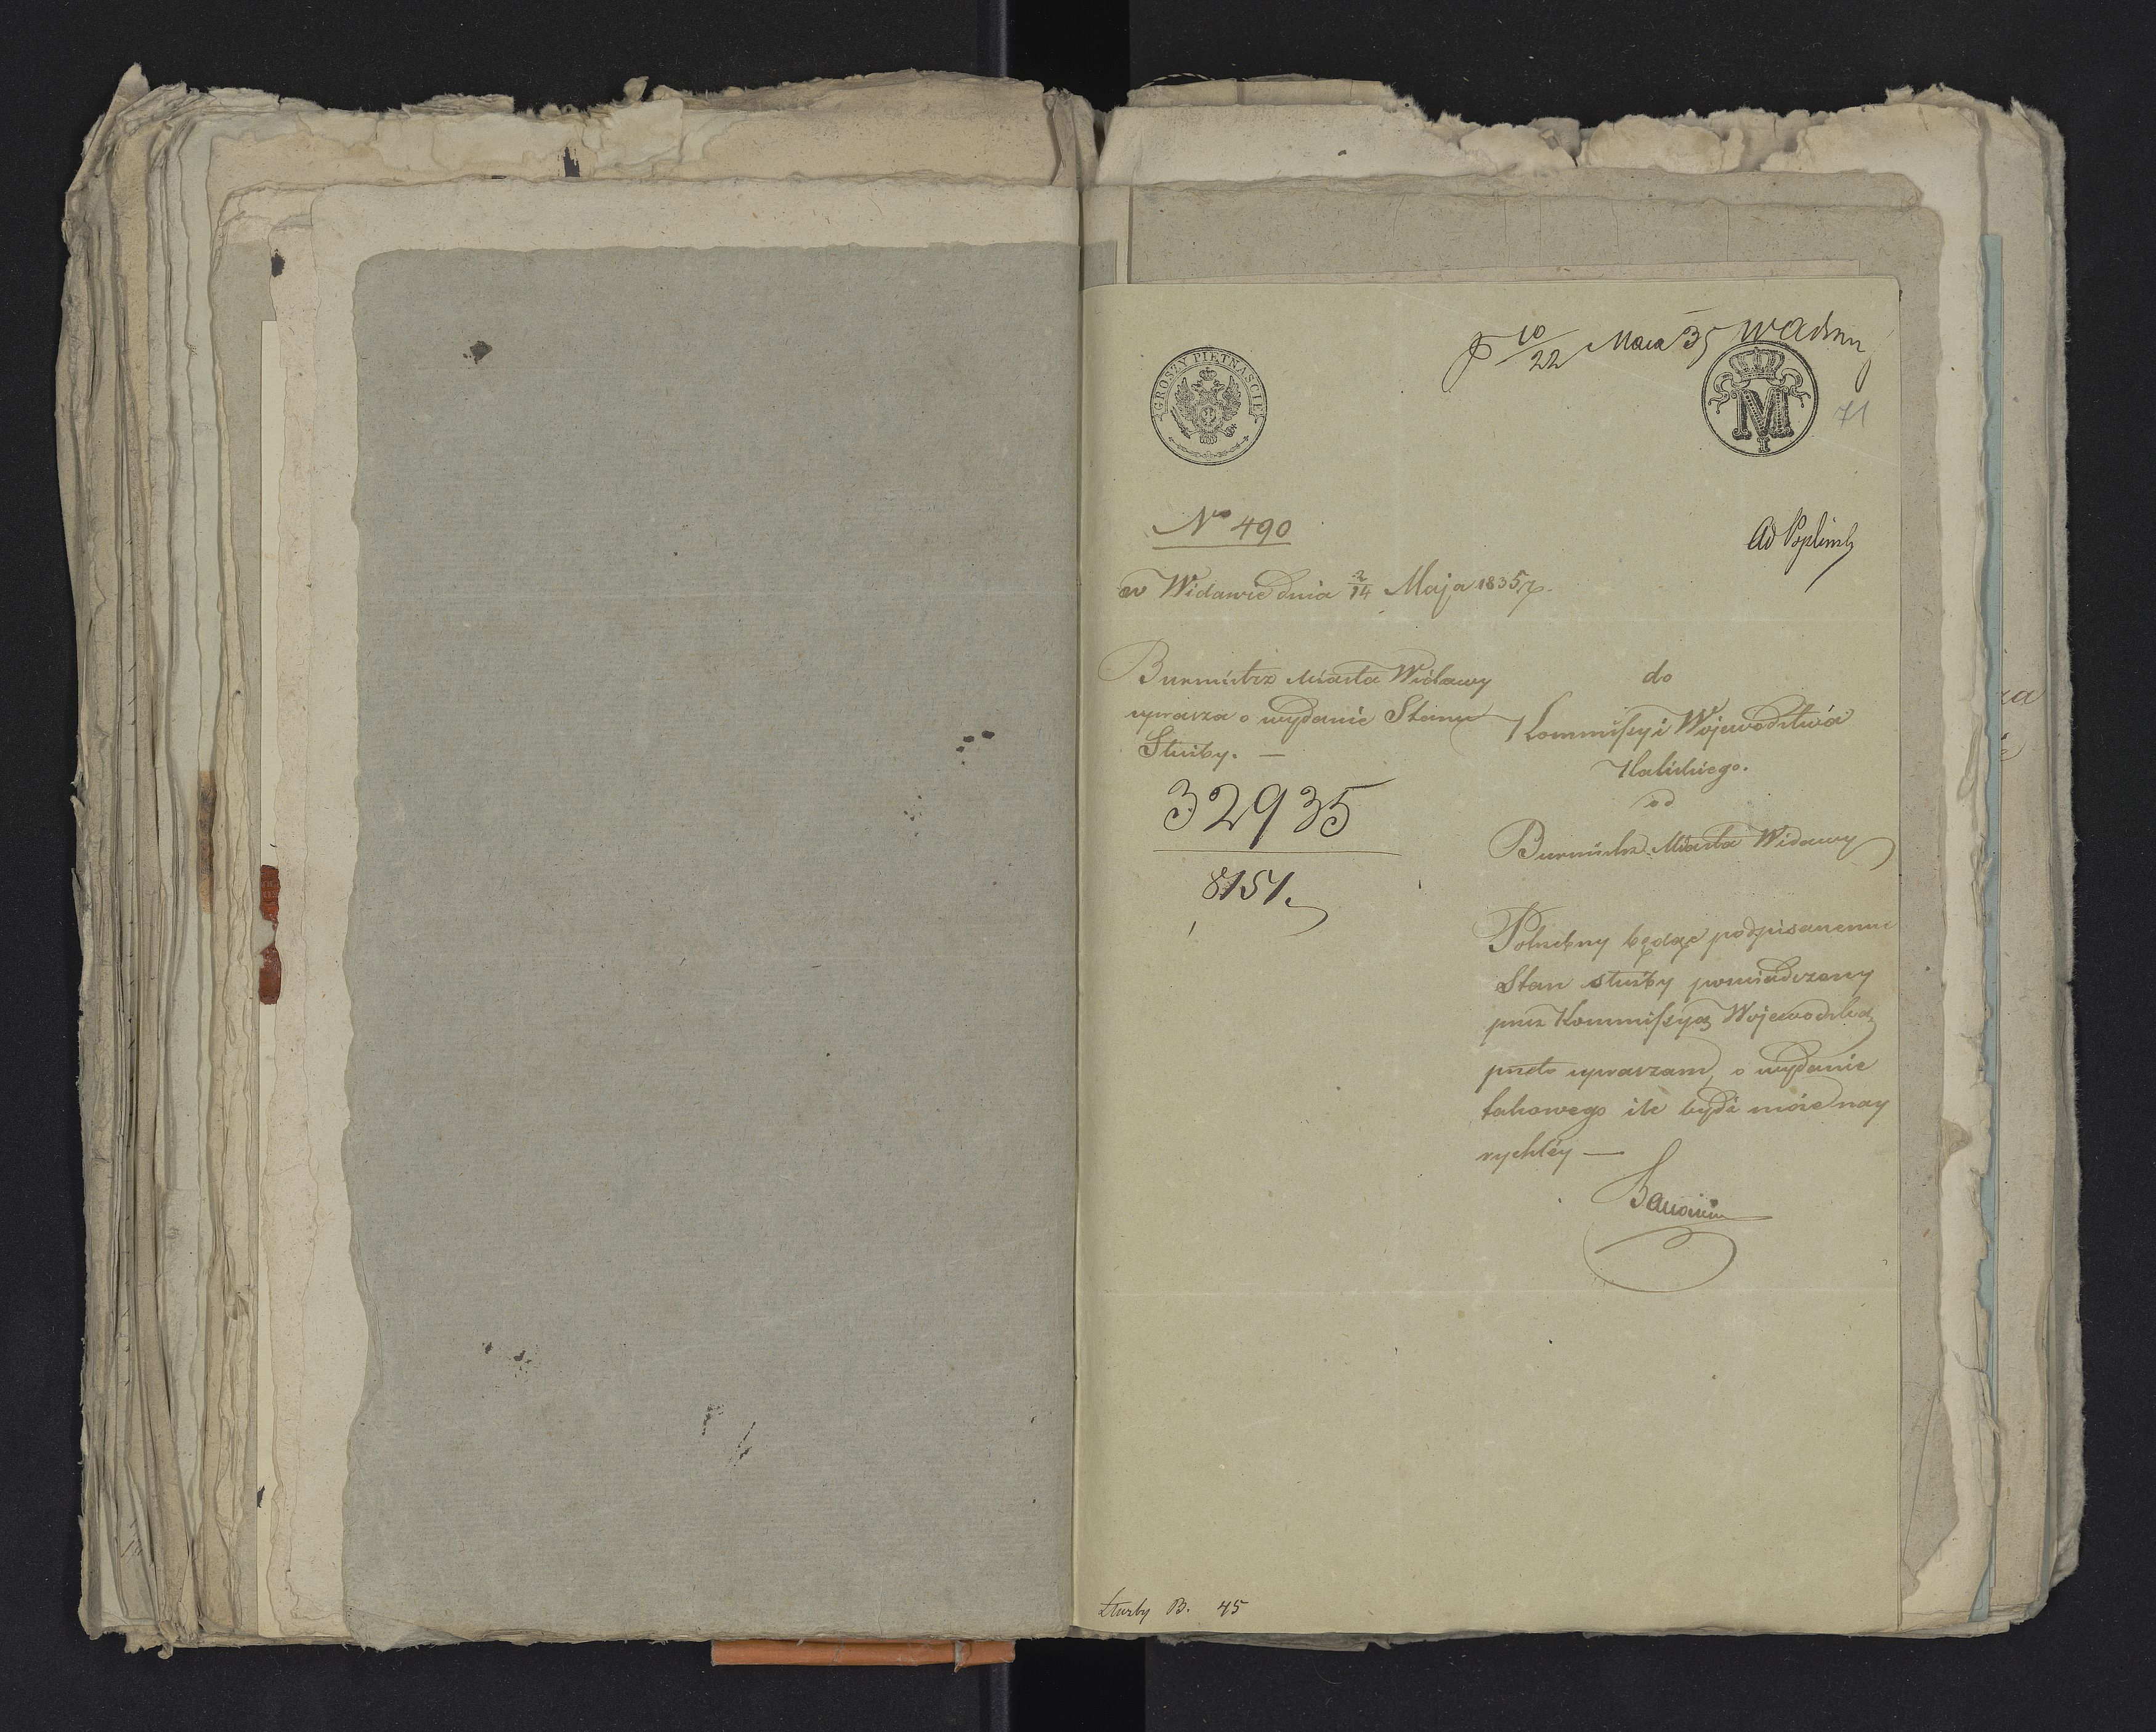 10/22 Maia 35
GROSZY PIĘTNAŚCIE
M
I
71
No 490
Ad
w Widawie dnia 2/14 Maja 1835 r.
Burmistrz Miasta Widawy
uprasza o wydanie Stanu
Służby. —
32935
8151.
do
Kommissyi Wojewodztwa
Kaliskiego.
od
Burmistrza Miasta Widawy
Potrzebny będąc podpisanemu
Stan służby poświadczony
przez Kommissyą Wojewodzką
przeto upraszam, o wydanie
takowego ile bydź może nay
rychléy —
B. 45